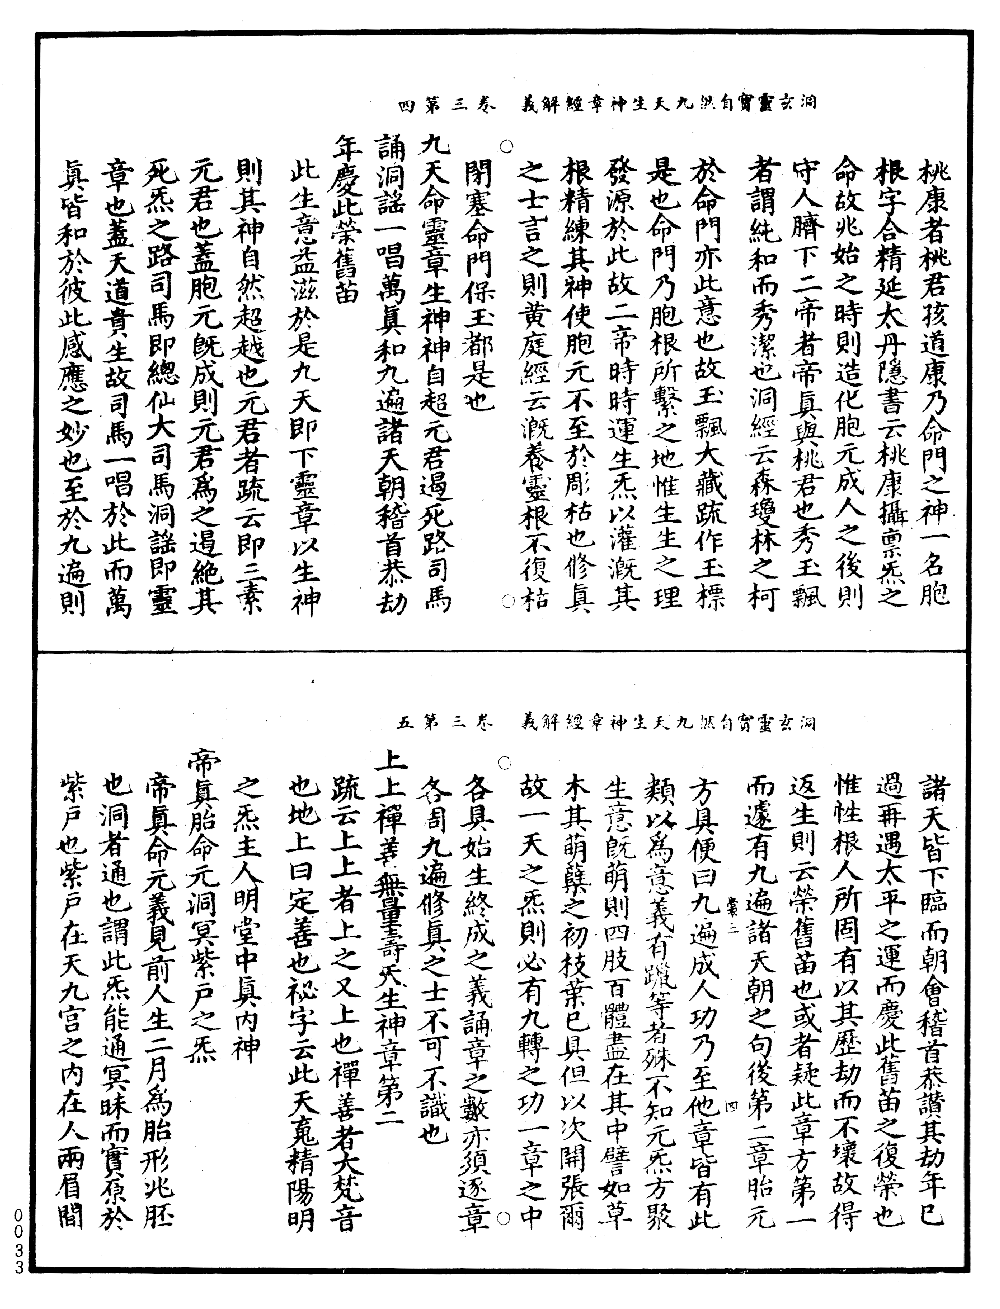 洞玄靈寶自然九天生神章經解義　卷三第四
桃康者桃君孩道康乃命門之神一名胞
根字合精延太丹隱書云桃康攝禀炁之
命故兆始之時則造化胞元成人之後則
守人臍下二帝者帝眞與桃君也秀玉飄
者謂純和而秀潔也洞經云森瓊林之柯
於命門亦此意也故玉飄大藏䟽作玉標
是也命門乃胞根所繫之地惟生生之理
發源於此故二帝時時運生炁以灌漑其
根精練其神使胞元不至於彫枯也修眞
之士言之則黃庭經云漑養靈根不復枯
閉塞命門保玉都是也
九天命靈章生神神自超元君遏死路司馬
誦洞謡一唱萬眞和九遍諸天朝稽首恭劫
年慶此榮舊苗
此生意益滋於是九天即下靈章以生神
則其神自然超越也元君者䟽云即三素
元君也蓋胞元旣成則元君爲之遏絶其
死炁之路司馬即總仙大司馬洞謡即靈
章也蓋天道貴生故司馬一唱於此而萬
眞皆和於彼此感應之妙也至於九遍則
洞玄靈寶自然九天生神章經解義　卷三第五
諸天皆下臨而朝會稽首恭讃其劫年已
過再遇太平之運而慶此舊苗之復榮也
惟性根人所固有以其歷劫而不壞故得
返生則云榮舊苗也或者疑此章方第一
而遽有九遍諸天朝之句後第二章胎元
方具便曰九遍成人功乃至他章皆有此
類以爲意義有躐等者殊不知元炁方聚
生意旣萌則四肢百體盡在其中譬如草
木其萌蘖之初枝葉已具但以次開張爾
故一天之炁則必有九轉之功一章之中
各具始生終成之義誦章之數亦須逐章
各周九遍修眞之士不可不識也
上上禪善無量壽天生神章第二
䟽云上上者上之又上也禪善者大梵音
也地上曰定善也袐字云此天䰟精陽明
之炁主人明堂中眞内神
帝眞胎命元洞冥紫戶之炁
帝眞命元義見前人生二月爲胎形兆胚
也洞者通也謂此炁能通冥昧而實原於
紫戶也紫戶在天九宫之内在人兩眉間
0033